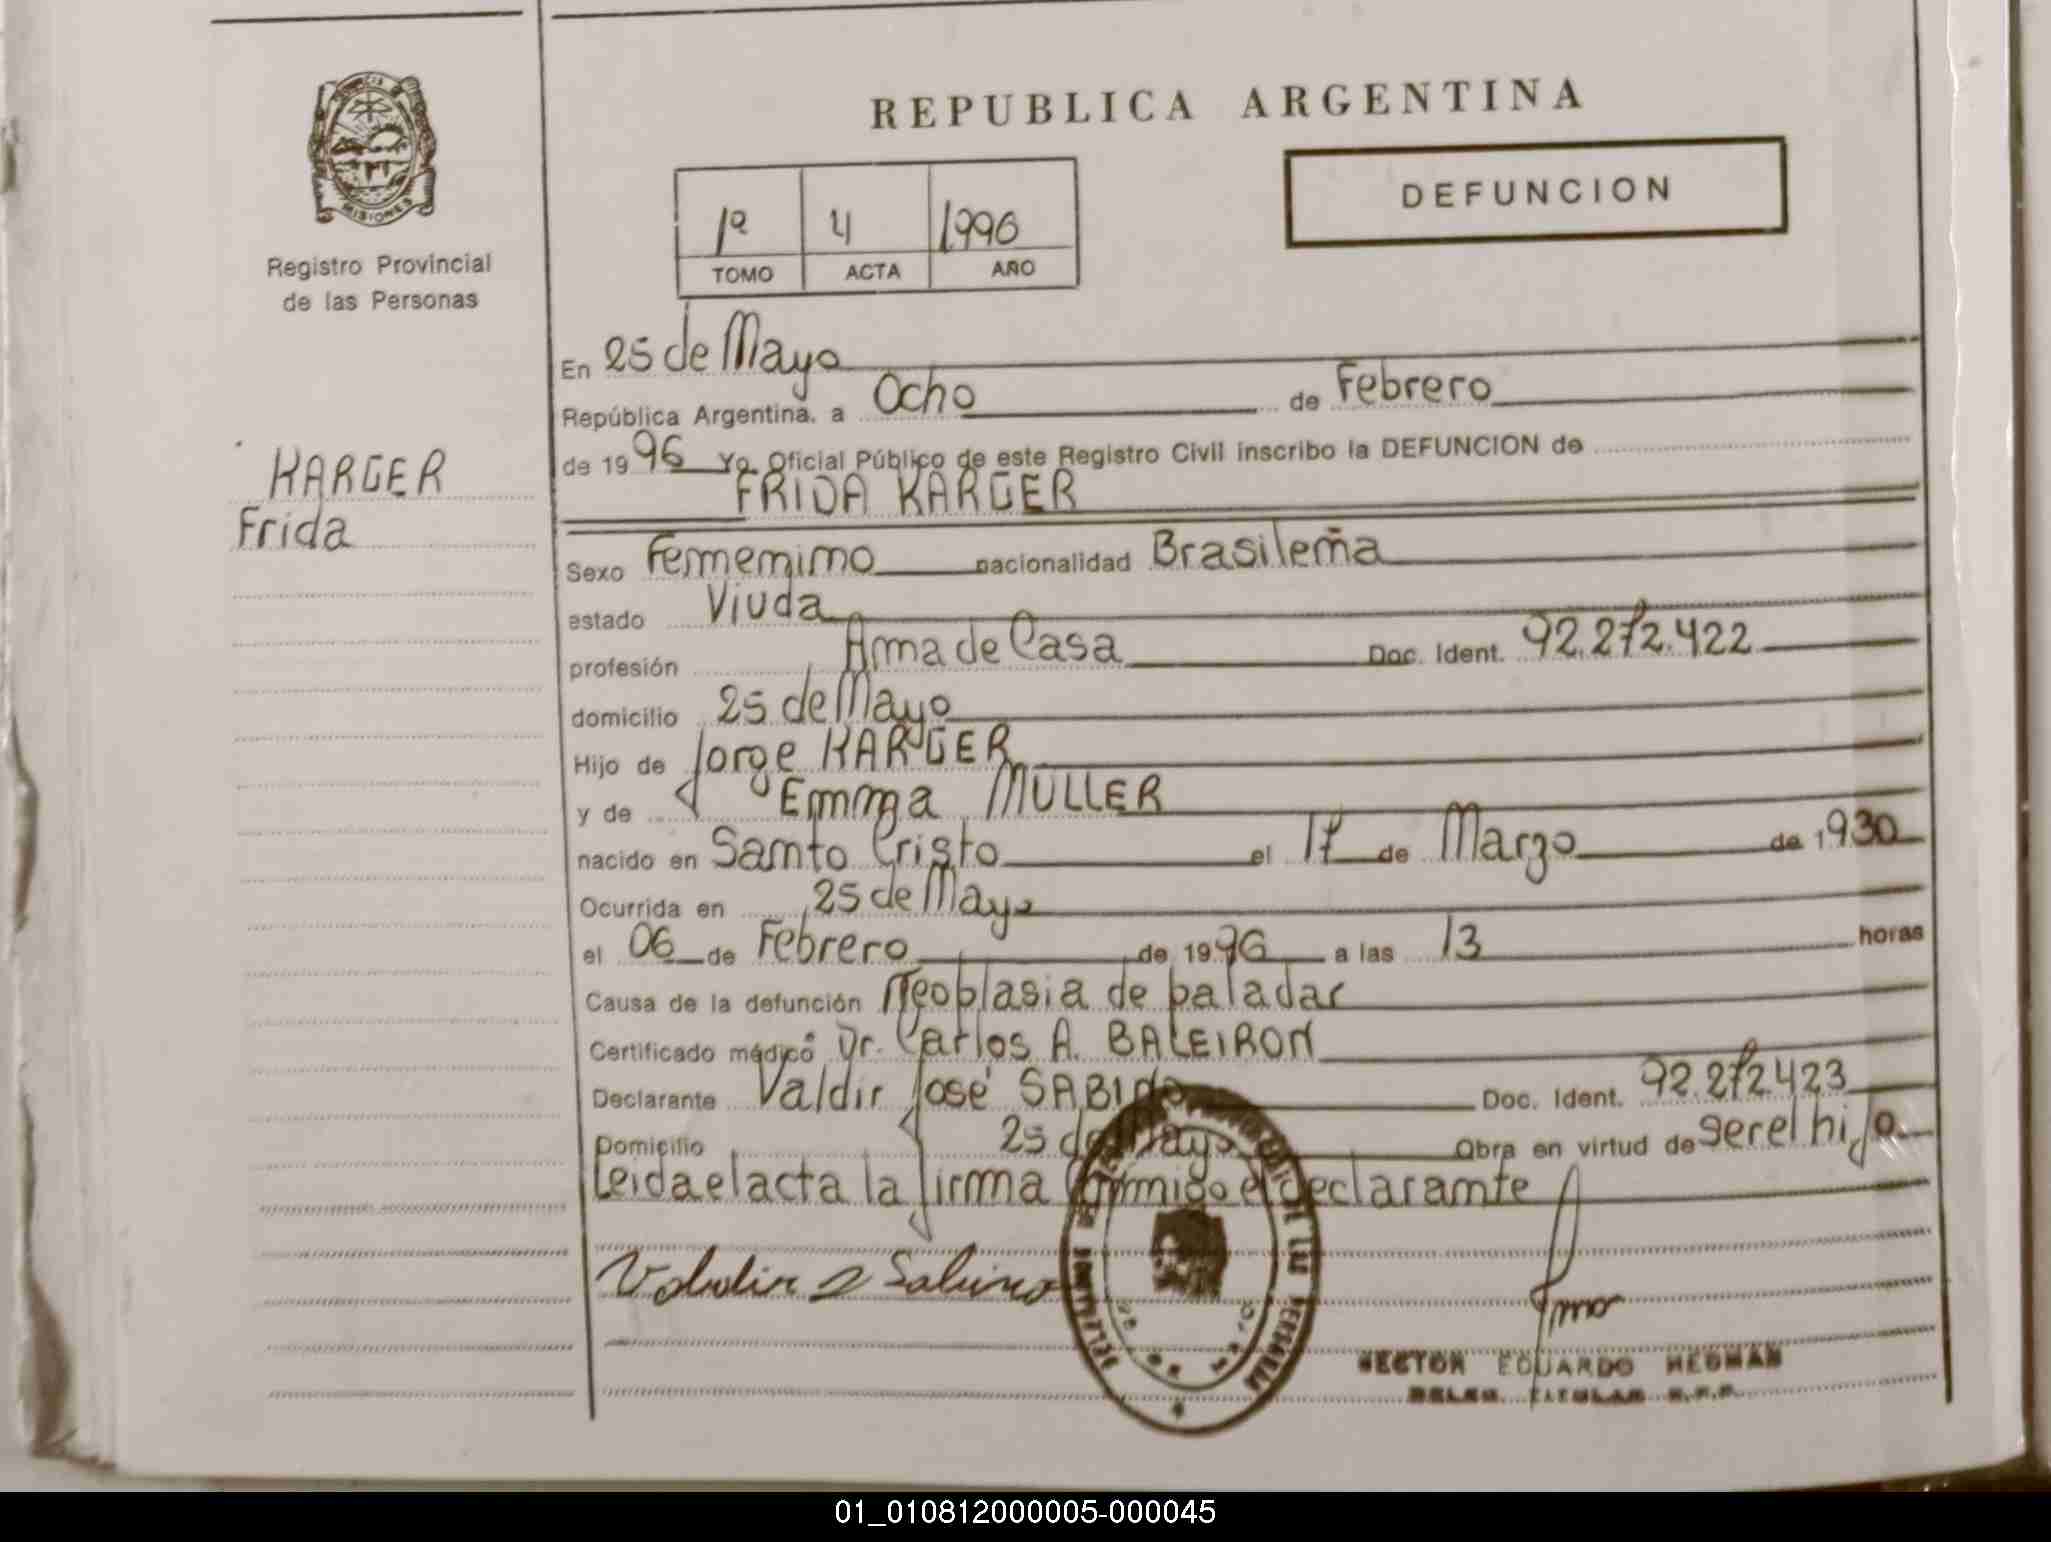 REPUBLICA ARGENTINA
DEFUNCION
MISIONES
Registro Provincial
de las Personas
1º 4 1996
TOMO ACTA AÑO
KARGER
Frida
En 25 de Mayo
República Argentina, a Ocho de Febrero
de 1996 Yo. Oficial Público de este Registro Civil inscribo la DEFUNCION de
FRIDA KARGER
Sexo Femenino nacionalidad Brasileña
estado Viuda
profesión Ama de Casa Doc. Ident. 92.272.422
domicilio 25 de Mayo
Hijo de Jorge KARGER
y de Emma MULLER
nacido en Santo Cristo el 17 de Marzo de 1930
Ocurrida en 25 de Mayo
el 06 de Febrero de 1996 a las 13 horas
Causa de la defunción Neoplasia de paladar
Certificado médico Dr. Carlos A. BALEIRON
Declarante Valdir José SABINO Doc. Ident. 92.272423
Domicilio 25 de Mayo Obra en virtud de ser el hijo
Leida el acta la firma Conmigo el declarante
Valdir J Sabino
HECTOR EDUARDO
01_010812000005-000045